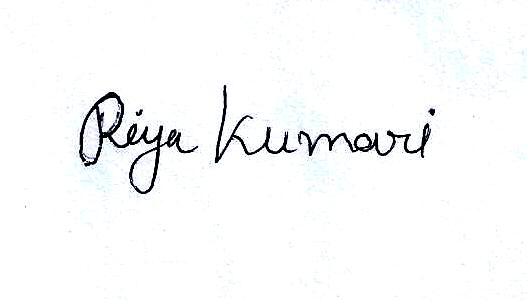 Riya Kumari